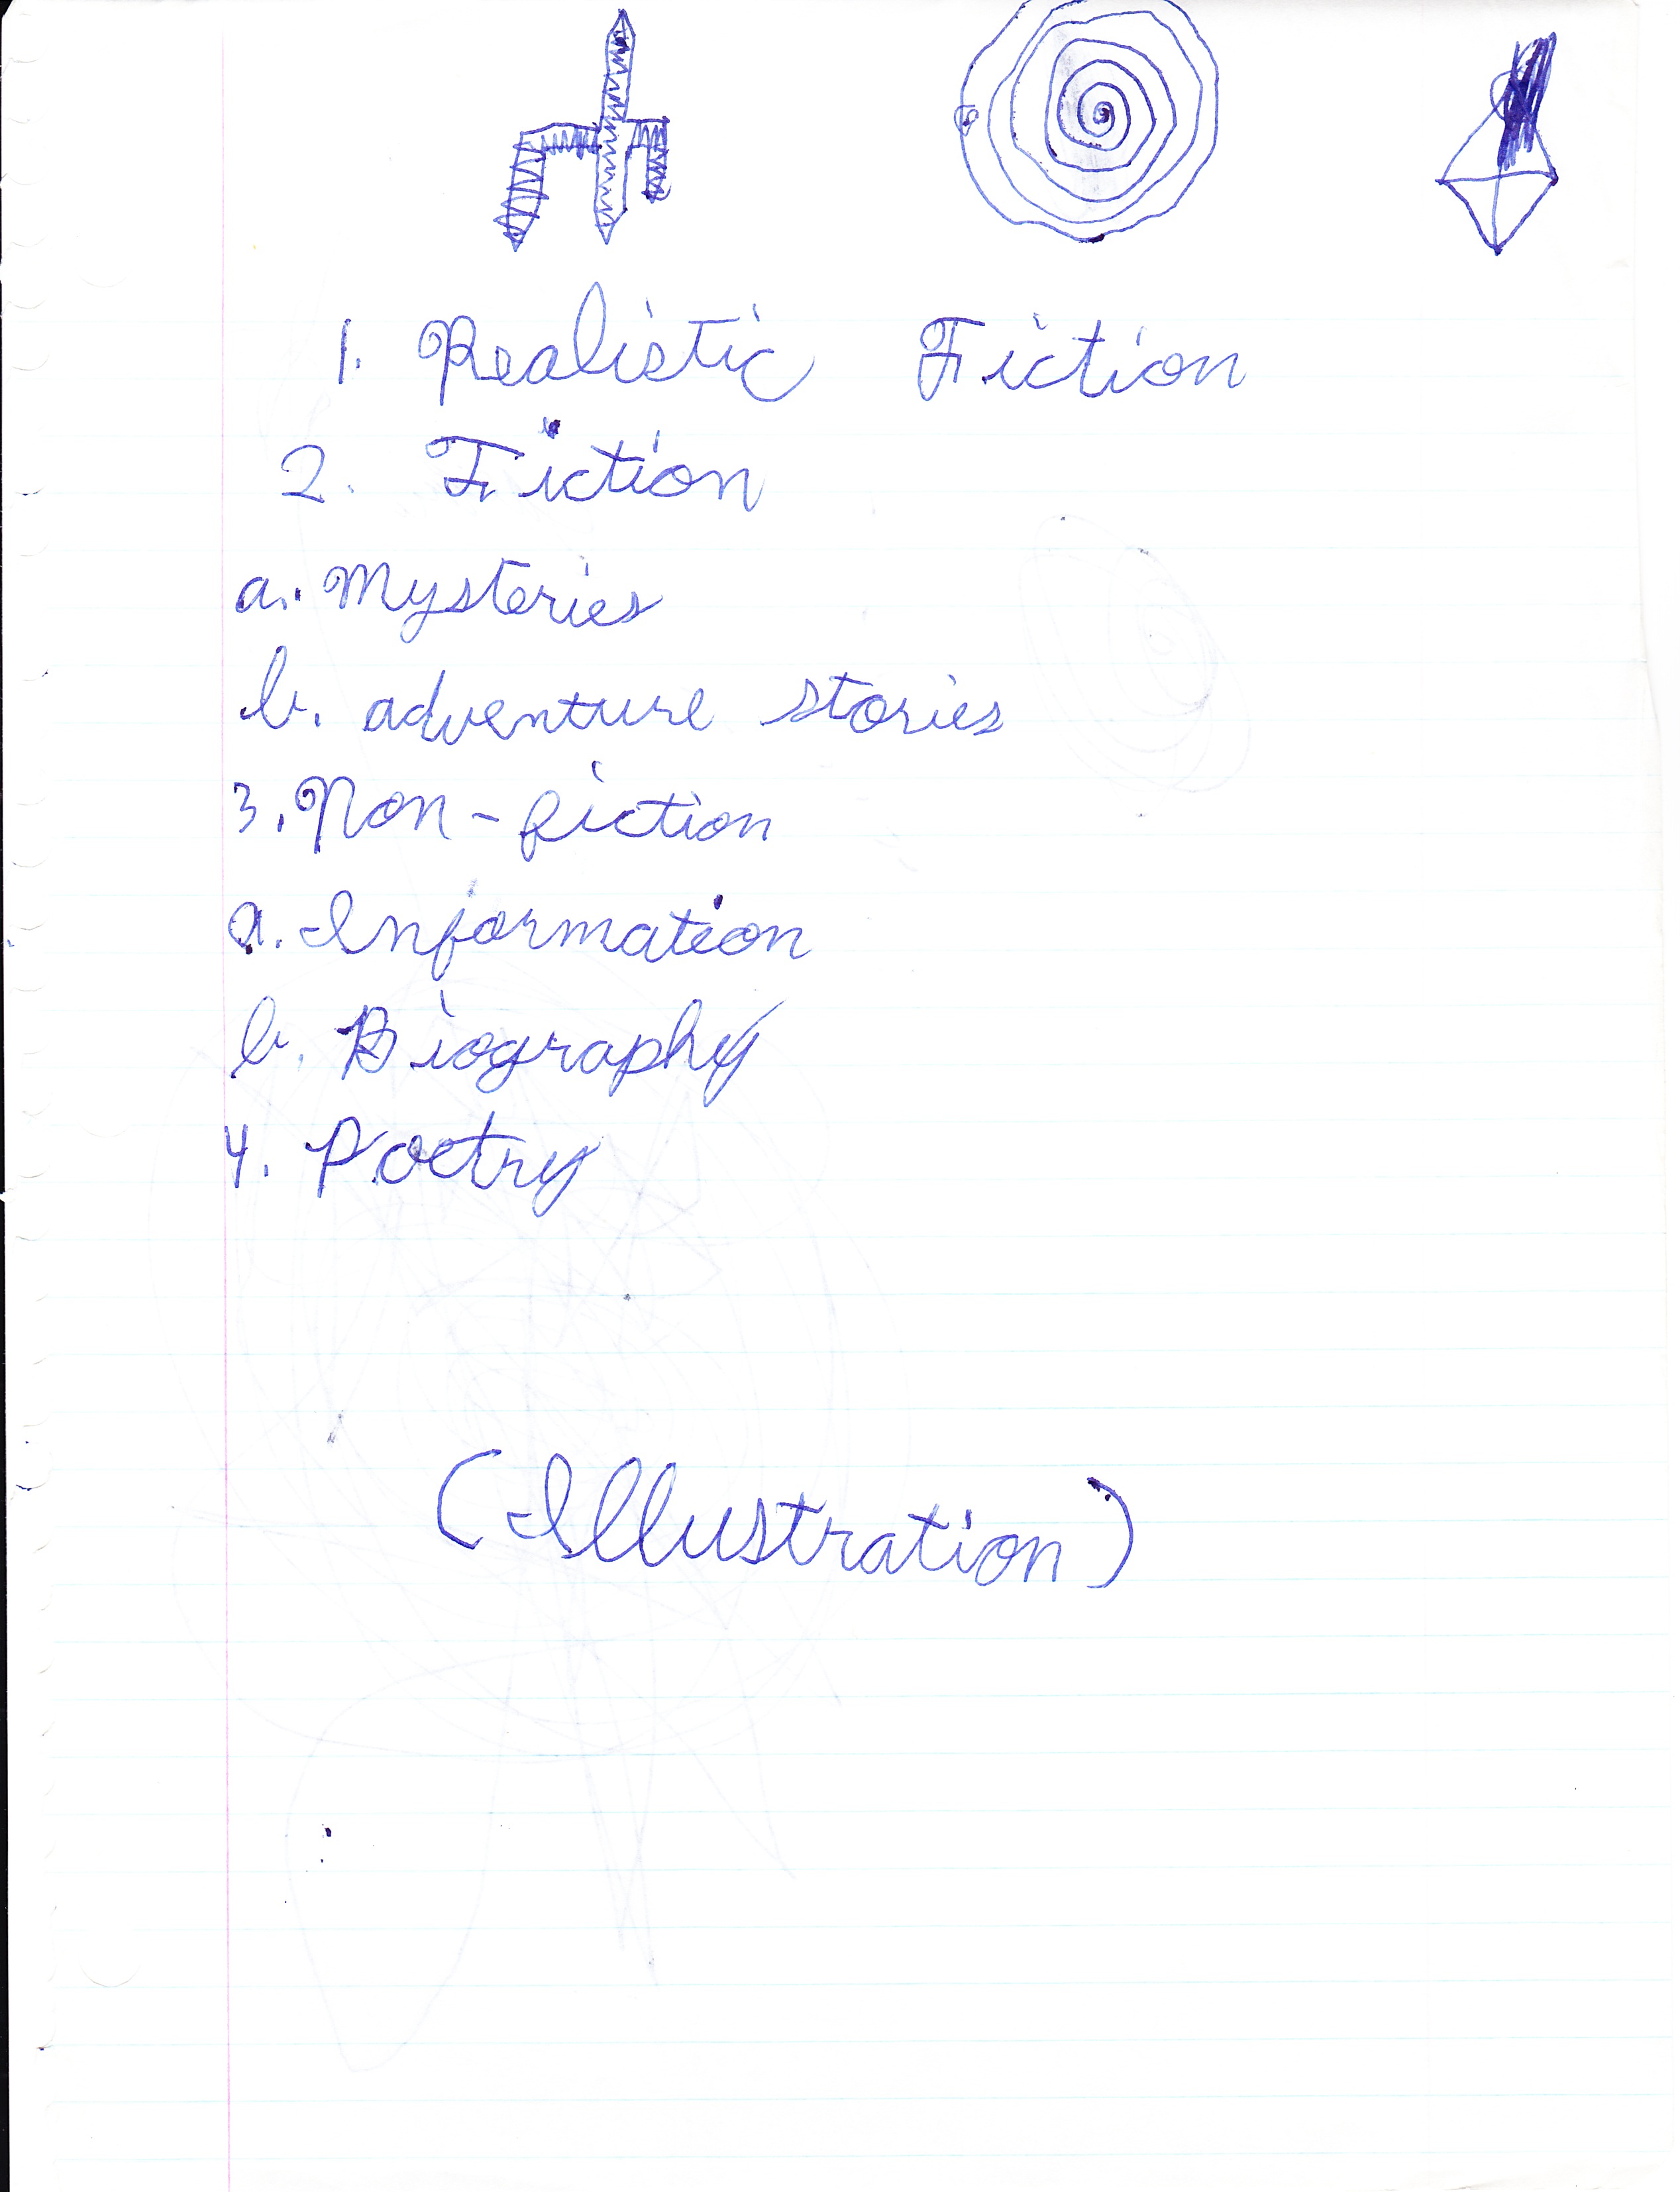 1. Realistic Fiction
2. Fiction
a. Mysteries
b. adventure stories
3. Non-fiction
a. Information
b. Biography
4. Poetry
(Illustration)